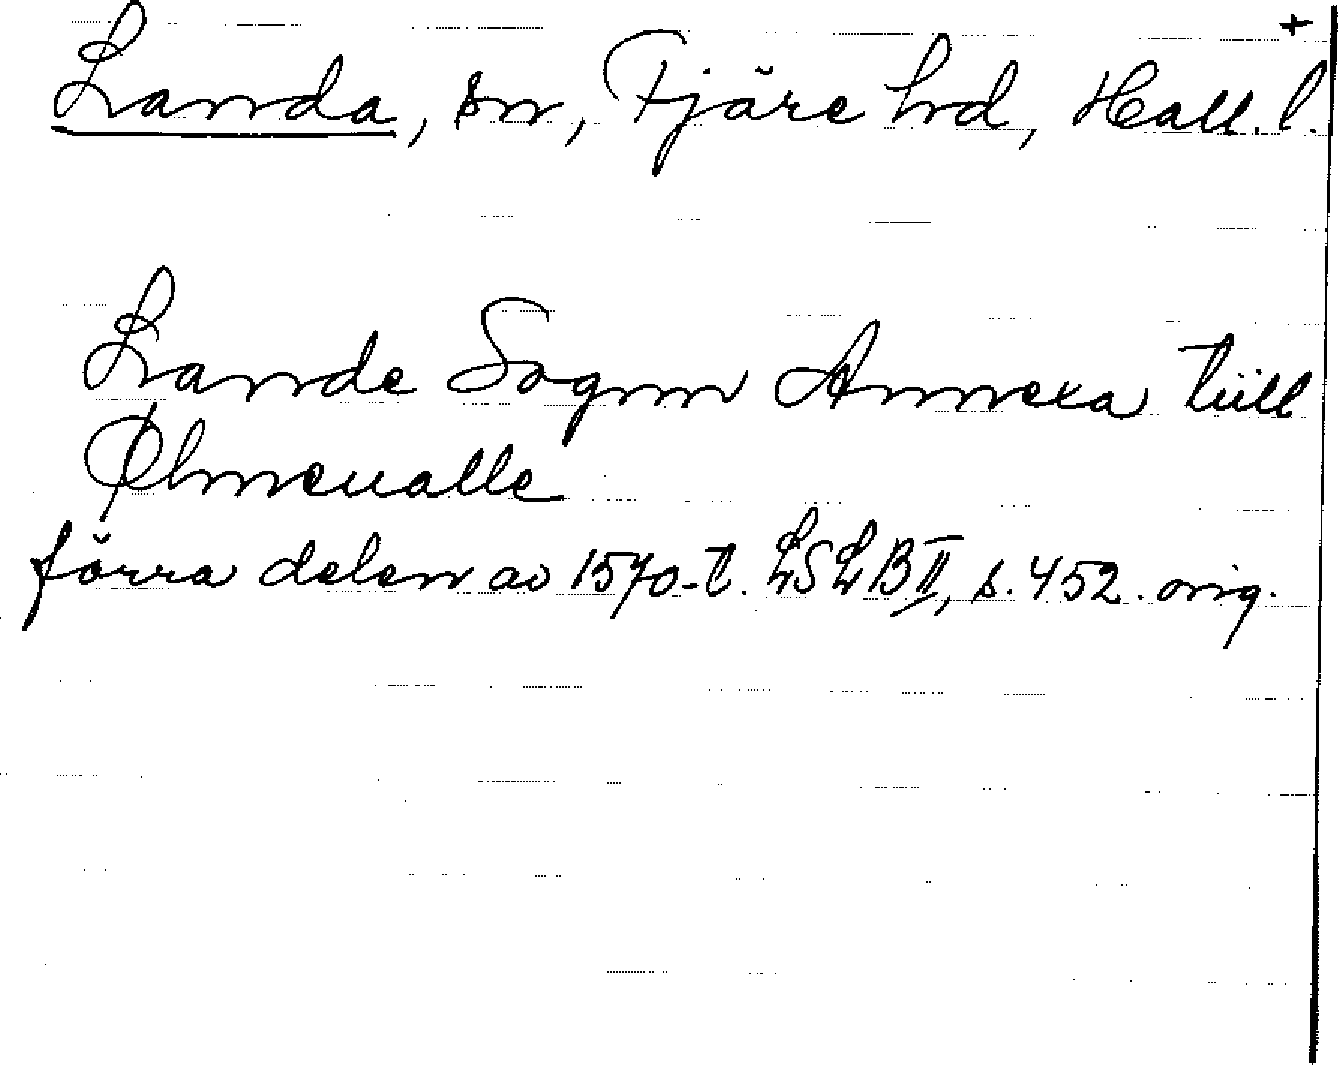 +
Landa, sn, Fjäre hd, Hall. l.
Lande Sognn Annexa tiill
Ølmeualle
förra delen av 1570-t. LSLB II, s. 452. orig.